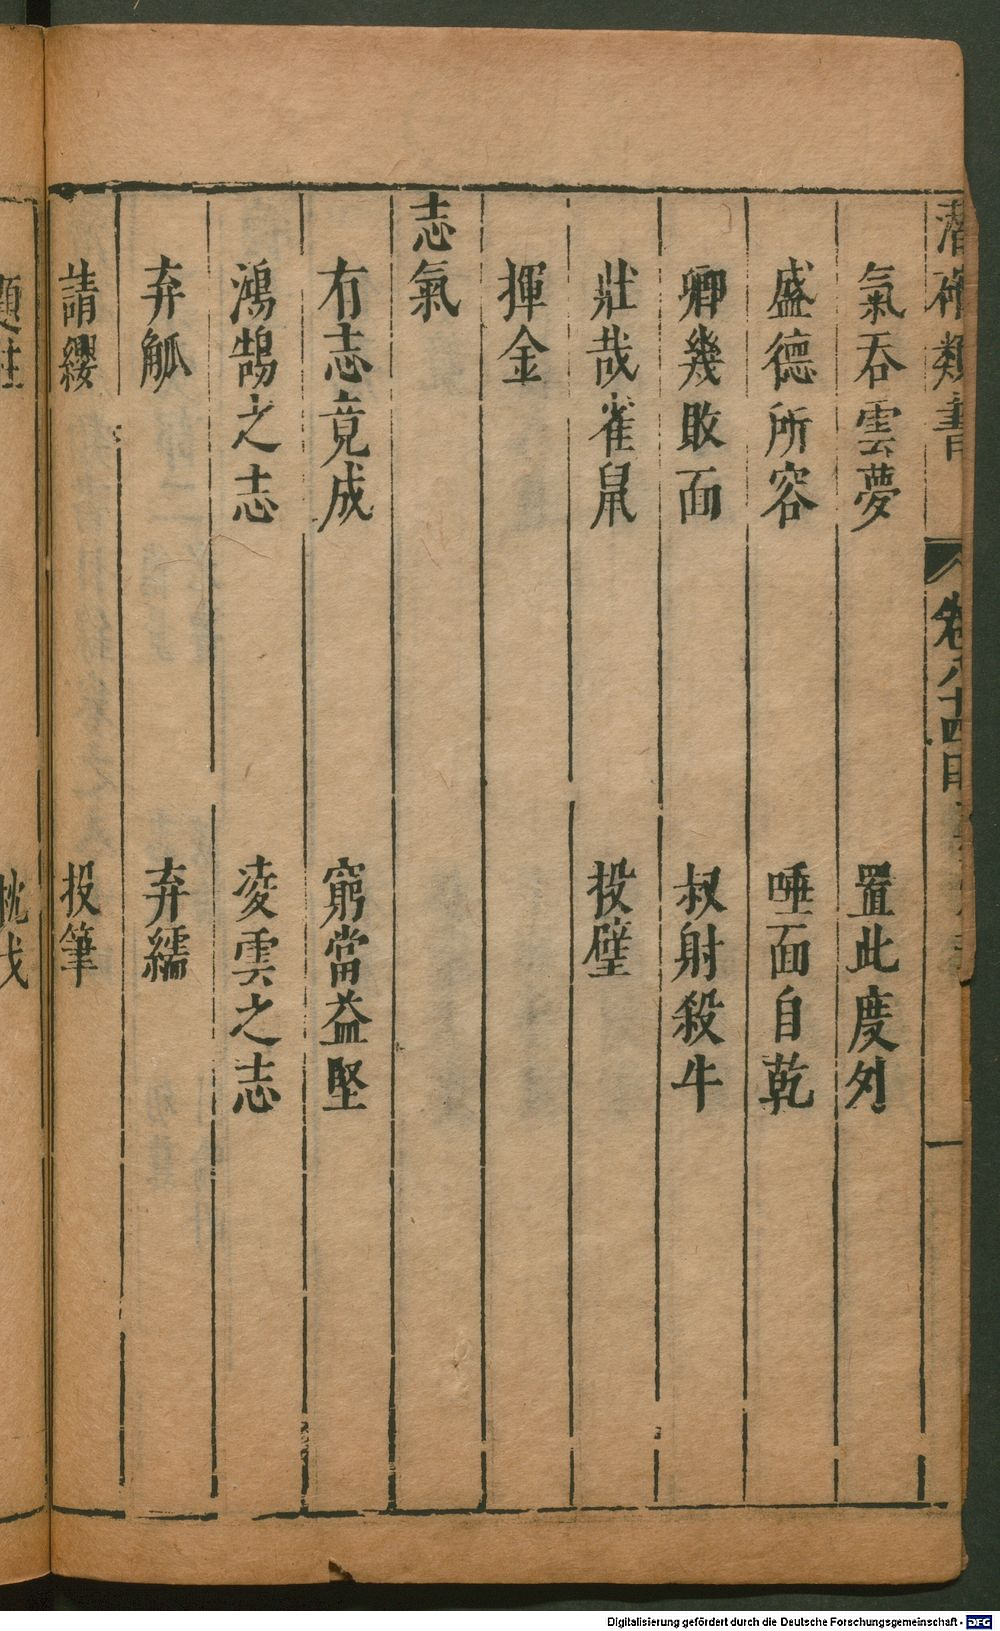 潛確類書 卷八十四目
氣吞雲夢 置此度外
盛德所容 唾面自乾
卿幾敗面 叔射殺牛
壯哉雀鼠 投璧
揮金
志氣
有志竟成 窮當益堅
鴻鵠之志 凌雲之志
弃觚 弃繻
請纓 投筆
題柱 枕戈
Digitalisierung gefördert durch die Deutsche Forschungsgemeinschaft - DFG